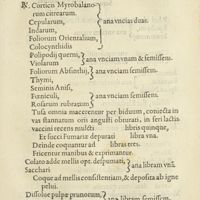 ℞. Corticis Myrobalano-
rum citrearum.
Cepularum,
Indarum,
Foliorum Orientalium,
Colocynthidis
ana vncias duas.
Polipodij quernij,
Violarum
ana vnciam vnam & semissem.
Foliorum Absinthij,
Thymi,
ana vnciam semissem.
Seminis Anisi,
Fœniculi,
Rosarum rubrarum
ana vnciam semissem.
Tusa omnia macerentur per biduum, coniecta in
vas stanneum oris angusti obturati, in seri lactis
vaccini recens mulcti libris quinque,
Et succi Fumariæ depurati libra vna.
Deinde coquantur ad libras tres.
Fricentur manibus & exprimantur.
Colato adde mellis opt. despumati,
Sacchari
ana libram vnā.
Coque ad mellis consistentiam, & deposita ab igne
pelui.
Dissolue pulpæ prunorum,
ana libram semissem.